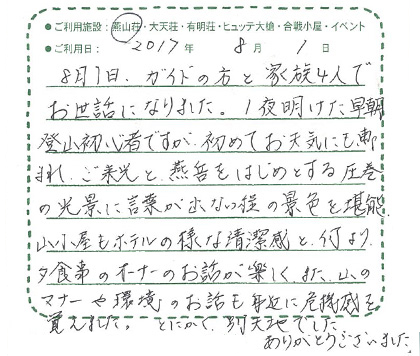 ●ご利用施設：燕山荘・大天荘・有明荘・ヒュッテ大槍・合戦小屋・イベント
●ご利用日： 2017 年 8 月 1 日
8月1日、ガイドの方と家族4人で
お世話になりました。1夜明けた早朝
登山初心者ですが、初めてお天気にも恵
まれ、ご来光と燕岳をはじめとする圧巻
の光景に言葉が出ない程の景色を堪能
山小屋もホテルの様な清潔感と、何より
夕食事のオーナーのお話が楽しく、また、山の
マナーや環境のお話も身近に危機感を
覚えました。 とにかく、別天地でした
ありがとうございました